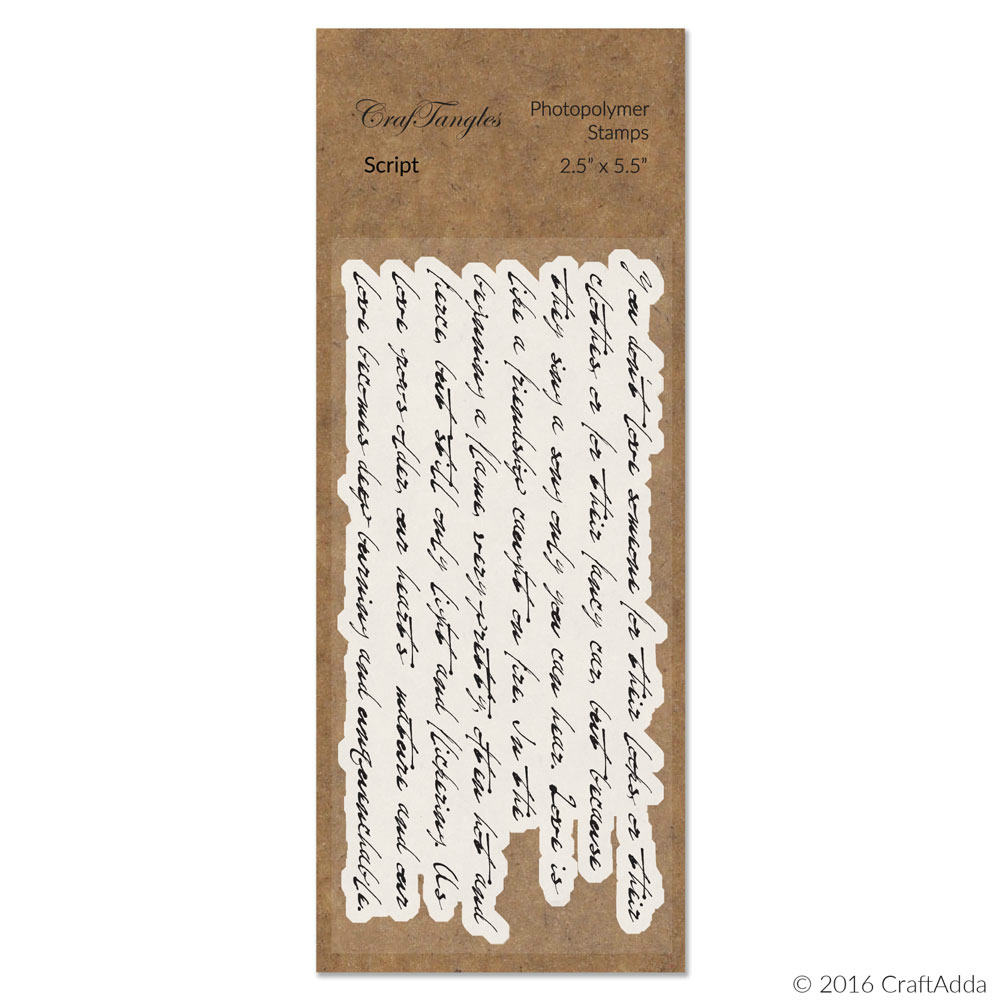 CrafTangles
Photopolymer
Stamps
Script
2.5" x 5.5"
you don't love someone for their looks, or their
clothes, or for their fancy car, but because
they sing a song only you can hear. Love is
like a friendship caught on fire. In the
beginning a flame, very pretty, often hot and
fierce, but still only light and flickering. As
love grows older, our hearts mature and our
love becomes deep burning and unquenchable.
© 2016 CraftAdda